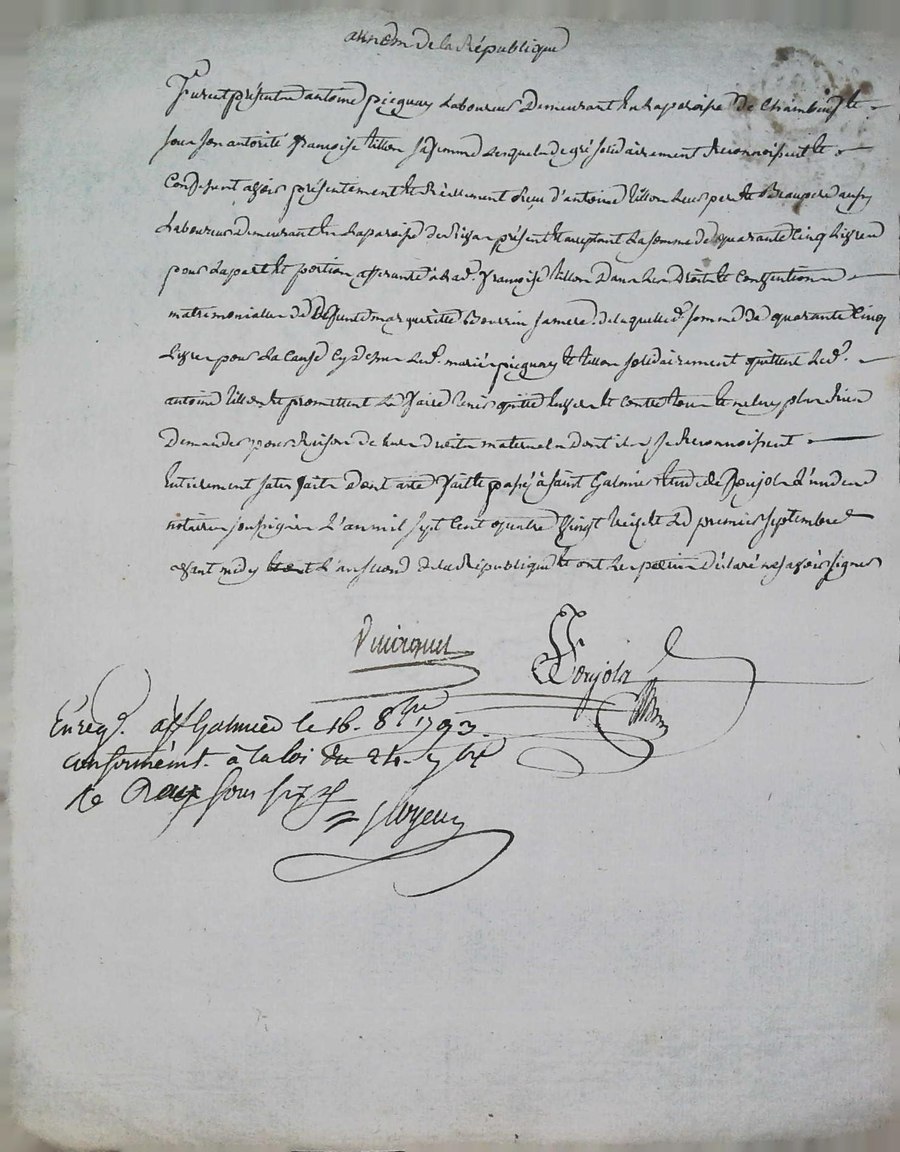 au nom de la République
Furent présents antoine picquay Laboureur Demeurant En La paroise De Chambeuf &
sous son autorité françoise tillon sa femme Lesquels de gré solidairement Reconnoissent &
Confessent avoir présentement & Réellement Reçu d'antoine tillon Leur pere & Beaupere aussy
Laboureur Demeurant En La paroise de présent & aceptant La somme de quarante Cinq Livres
pour La part & portion afferante à lad. françoise tillon Dans Les Droits & Constitutions
matrimoniales de Defunte margueritte Bourrin sa mere, de laquelle d. somme de quarante Cinq
Livres pour La Cause Cy dessus Les d. mariés picquay & tillon solidairement quittent Led.
antoine tillon & promettent Le faire tenir quitte Envers & Contre tous & ne luy plus Rien
Demander pour Raison de Leurs Droits maternels Dont ils se Reconnoissent
Entierement satisfaits Dont acte fait & passé à Saint Galmier Etude de Ponjols L'un des
notaires soussignés L'an mil sept Cent quatre Vingt treize Le premier septembre
avant midy L'an second de La République & ont Les parties Déclaré ne savoir signer
Ponjols
Enreg. à st Galmier le 16. 8bre 1793.
conformémt. à la loi du 24. 7bre
& Reçu sous